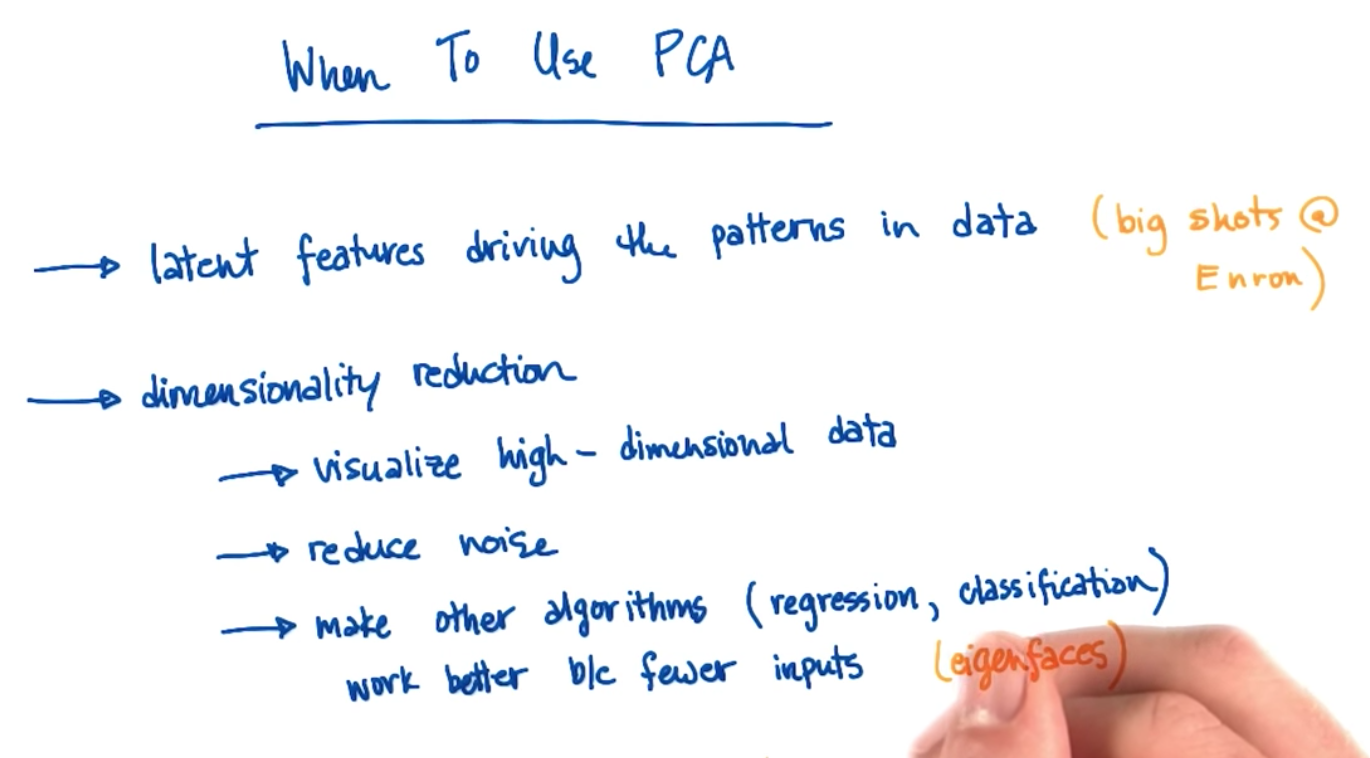 When To Use PCA
latent features driving the patterns in data (big shots @
Enron)
dimensionality reduction
visualize high-dimensional data
reduce noise
make other algorithms (regression, classification)
work better b/c fewer inputs (eigenfaces)